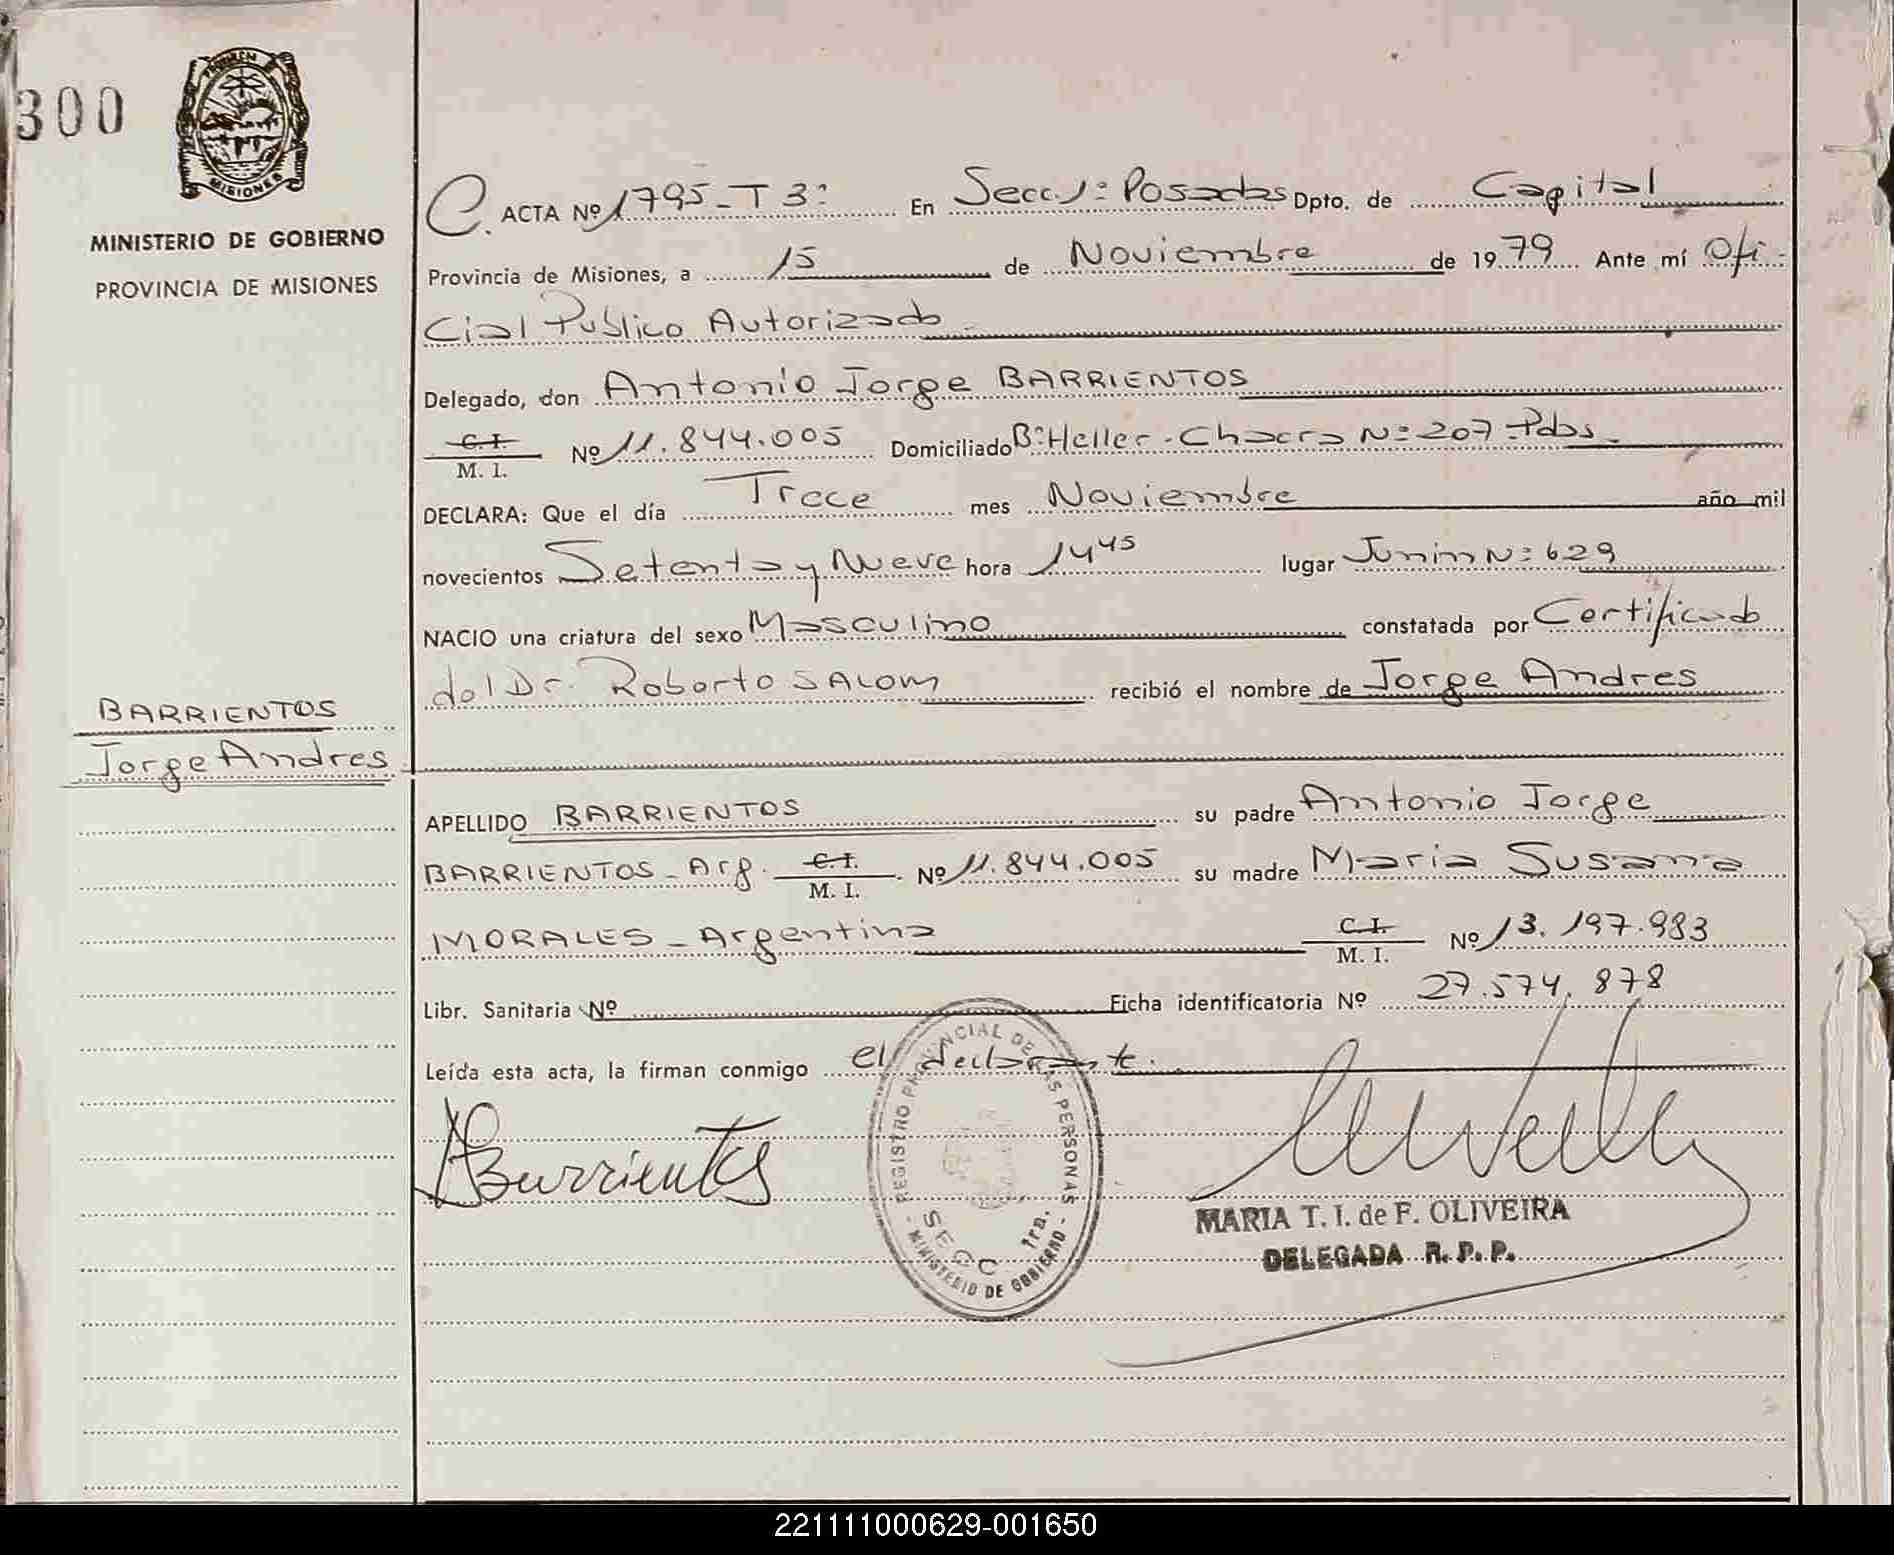 300
PROVINCIA
MISIONES
MINISTERIO DE GOBIERNO
PROVINCIA DE MISIONES
BARRIENTOS
Jorge Andres
C. ACTA Nº 1795 - T 3º En Secc. 1ª Posadas Dpto. de Capital
Provincia de Misiones, a 15 de Noviembre de 1979 Ante mí Ofi-
cial Publico Autorizado
Delegado, don Antonio Jorge BARRIENTOS
C. I. M. I. Nº 11.844.005 Domiciliado Bº Heller - Chacra Nº 207 - Pdas.
DECLARA: Que el día Trece mes Noviembre año mil
novecientos Setenta y Nueve hora 14 45 lugar Junin Nº 629
NACIO una criatura del sexo Masculino constatada por Certificado
del Dr. Roberto SALOM recibió el nombre de Jorge Andres
APELLIDO BARRIENTOS su padre Antonio Jorge
BARRIENTOS - Arg. C. I. M. I. Nº 11.844.005 su madre Maria Susana
MORALES - Argentina C. I. M. I. Nº 13.197.983
Libr. Sanitaria Nº Ficha identificatoria Nº 27.574.878
Leída esta acta, la firman conmigo el declarante.
ABarrientos
REGISTRO PROVINCIAL DE LAS PERSONAS
SECC 1ra.
- MINISTERIO DE GOBIERNO -
MARIA T. I. de F. OLIVEIRA
DELEGADA R. P. P.
221111000629-001650